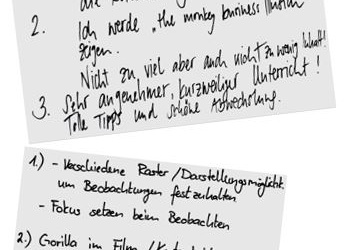 2. Ich werde "the monkey business illusion
zeigen.
Nicht zu viel aber auch nicht zu wenig Inhalt!
3. Sehr angenehmer, kurzweiliger Unterricht!
Tolle Tipps und schöne Abwechslung.
1.) - Verschiedene Raster/Darstellungsmöglichk
um Beobachtungen festzuhalten
- Fokus setzen beim Beobachten
2.) Gorilla im Film /